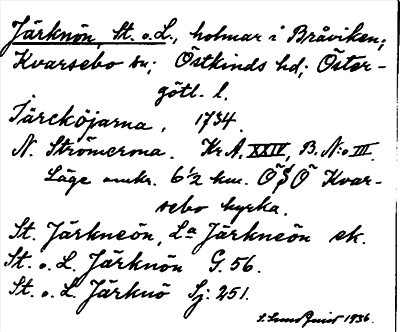 Järknön, St. o. L., holmar i Bråviken;
Kvarsebo sn; Östkinds hd; Öster-
götl. l.
Järcköjarna, 1734.
N. Strömcrona. Kr. A. XXIV, B. N:o III.
Läge omkr. 6½ km. ÖSÖ Kvar-
sebo kyrka.
St. Järkneön, La Järkneön ek.
St. o. L. Järknön G. 56.
St. o. L. Järknö Sj: 251.
S. Lundquist 1936.